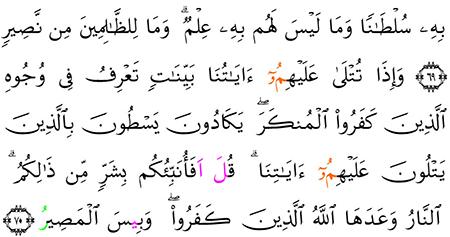 بِهِۦ سُلْطَٰنٗا وَمَا لَيْسَ لَهُم بِهِۦ عِلْمٞۗ وَمَا لِلظَّٰلِمِينَ مِن نَّصِيرٖ
﴿٦٩﴾ وَإِذَا تُتْلَىٰ عَلَيْهِمُۥٓ ءَايَٰتُنَا بَيِّنَٰتٖ تَعْرِفُ فِى وُجُوهِ
ٱلَّذِينَ كَفَرُوا۟ ٱلْمُنكَرَۖ يَكَادُونَ يَسْطُونَ بِٱلَّذِينَ
يَتْلُونَ عَلَيْهِمُۥٓ ءَايَٰتِنَاۗ قُلَ اَفَأُنَبِّئُكُم بِشَرّٖ مِّن ذَٰلِكُمُۗ
ٱلنَّارُ وَعَدَهَا ٱللَّهُ ٱلَّذِينَ كَفَرُوا۟ۖ وَبِيسَ ٱلْمَصِيرُ ﴿٧٠﴾